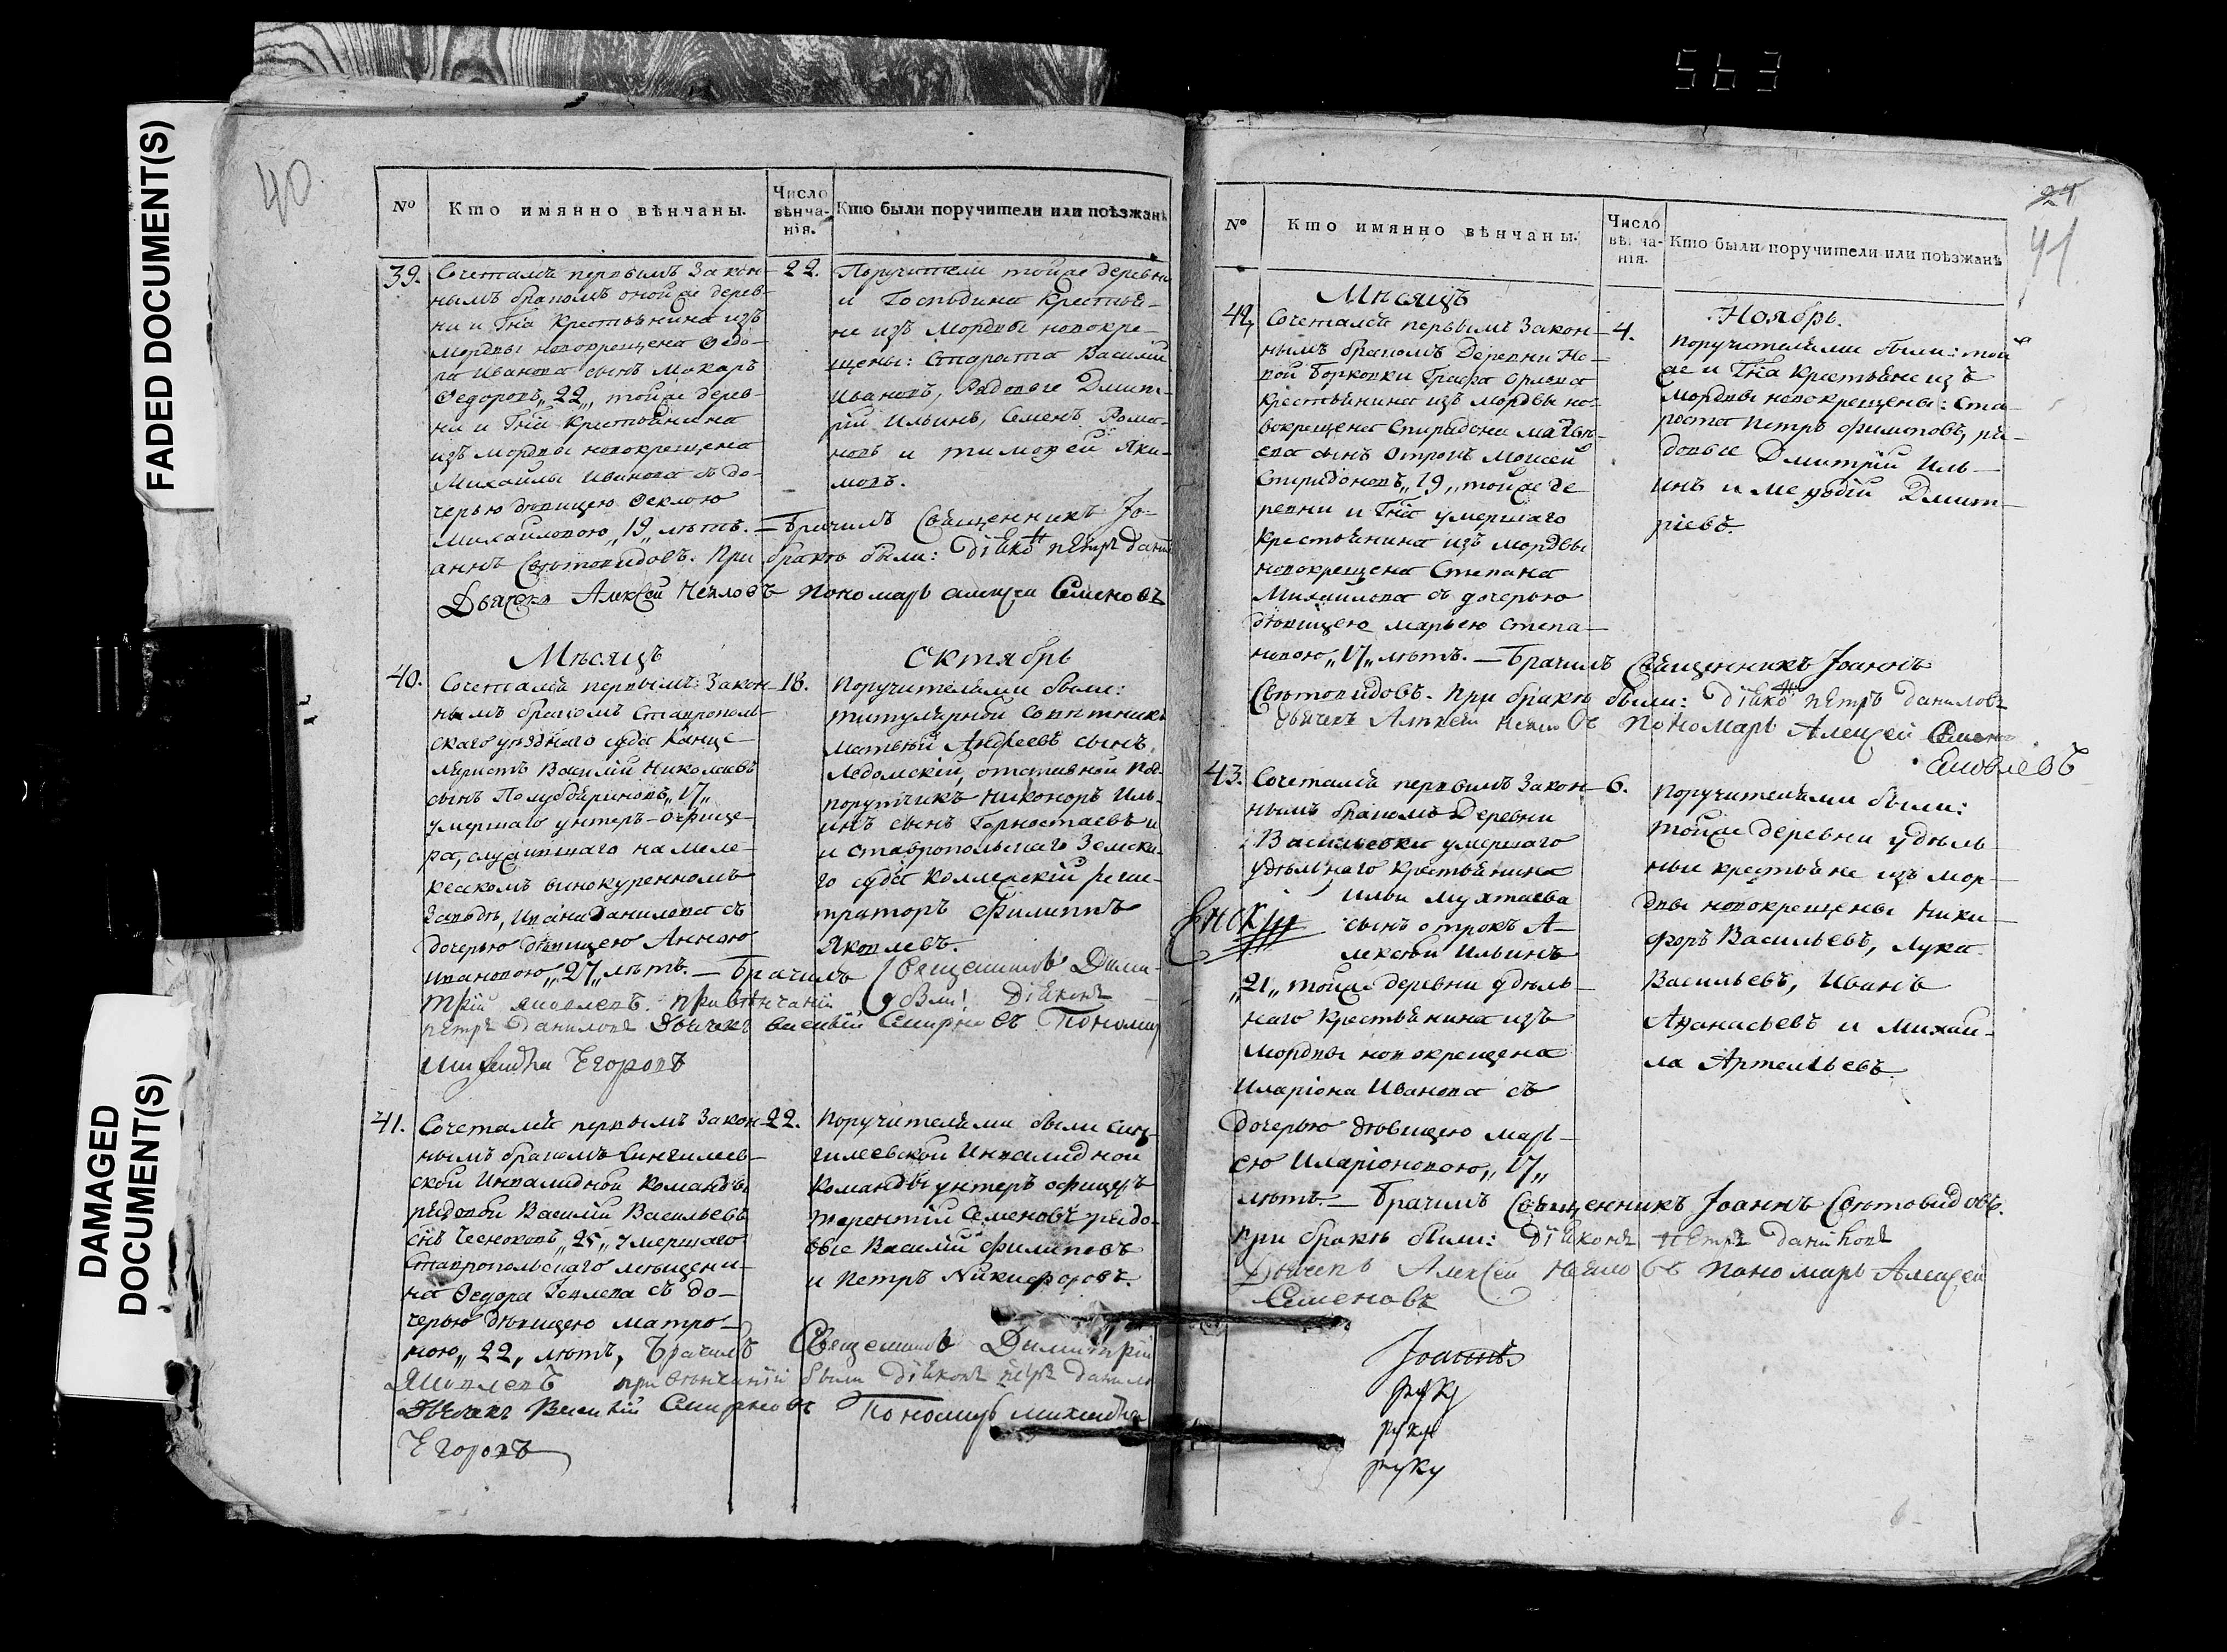 563
FADED DOCUMENT(S)
DAMAGED
DOCUMENT(S)
40
№ Кто имянно вѣнчаны. Число вѣнча- нія. Кто были поручители или поѣзжанѣ
39. Сочетался первымъ закон-
нымъ бракомъ оной же дерев-
ни и Гна крестьянина изъ
мордвы новокрещена Ѳедо-
ра Иванова сынъ Макаръ
Ѳедоровъ „22„ той же дерев-
ни и Гна крестьянина
изъ мордвы новокрещена
Михайлы Иванова съ до-
черью дѣвицею Ѳеклою
Михайловою „19„ лѣтъ. — Брачилъ Священникъ Іо-
аннъ Свѣтовидовъ. При бракѣ были: діяконъ Петръ Дани
Дьячекъ Алексѣй Неяловъ пономарь Алексѣй Семеновъ
22. Поручители той же деревни
и Господина крестья-
не изъ мордвы новокре-
щены: Староста Василій
Ивановъ, Рядовые Дмит-
рій Ильинъ, Семенъ Рома-
новъ и Тимоѳей Яки-
мовъ.
Мѣсяцъ Октябрь
40. Сочетался первымъ закон-
нымъ бракомъ Ставрополь-
скаго уѣзднаго суда Канце-
ляристъ Василій Николаевъ
сынъ Полубояриновъ „17„
умершаго унтеръ-офице-
ра, служившаго на Меле-
кескомъ винокуренномъ
заводѣ, Ивана Данилова съ
дочерью дѣвицею Анною
Ивановою „27„ лѣтъ. — Брачилъ Священникъ Дими-
трій Яковлевъ. При вѣнчаніи были: Діяконъ
Петръ Даниловъ Дьячекъ Василій Смирновъ Пономарь
Егоровъ
18. Поручителями были:
титулярной совѣтникъ
Матвѣй Андреевъ сынъ
Ледомскій, отставной под-
порутчикъ Никоноръ Иль-
инъ сынъ Горностаевъ и
и Ставропольскаго Земска-
го суда коллежскій реги-
траторъ Филиппъ
Яковлевъ.
41. Сочетался первымъ закон-
нымъ бракомъ Сингилеев-
ской Инвалидной команды
рядовой Василій Васильевъ
снъ Чесноковъ „25„ умершаго
Ставропольскаго мещани-
на Ѳедора съ до-
черью дѣвицею Матро-
ною „22„ лѣтъ, Брачилъ Священникъ Димитрій
Яковлевъ при вѣнчаніи были діяконъ Петръ Данило
Дьячекъ Василій Смирновъ Пономарь
Егоровъ
22. Поручителями были Син-
гилеевской Инвалидной
команды унтеръ офицеръ
Терентій Семеновъ рядо-
вые Василій Филиповъ
и Петръ Никифоровъ.
24
41
№ Кто имянно вѣнчаны. Число вѣнча- нія. Кто были поручители или поѣзжанѣ
Мѣсяцъ Ноябрь.
42. Сочетался первымъ закон-
нымъ бракомъ Деревни Но-
вой Борковки Графа Орлова
крестьянина изъ мордвы но-
вокрещена Спиридона Матвѣ-
ева сынъ отрокъ Моисей
Спиридоновъ „19„ той же де
ревни и Гна умершаго
крестьянина изъ мордвы
новокрещена Степана
Михайлова съ дочерью
дѣвицею Марьею Степа-
новою „17„ лѣтъ. — Брачилъ Священникъ Іоаннъ
Свѣтовидовъ. При бракѣ были: діяконъ Петръ Даниловъ
дьячекъ Алексѣй Неяловъ Пономарь Алексѣй Семено
4. Поручителями были: той
же и Гна крестьяне изъ
мордвы новокрещены: Ста-
роста Петръ Филиповъ, ря-
довые Дмитрій Иль-
инъ и Меѳодій Дмит-
ріевъ.
43. Сочетался первымъ закон-
нымъ бракомъ Деревни
Васильевки умершаго
удѣльнаго крестьянина
Ильи Мухтаева
сынъ отрокъ А-
лексѣй Ильинъ
„21„ той же деревни удѣль-
наго крестьянина изъ
мордвы новокрещена
Иларіона Иванова съ
дочерью дѣвицею Марь-
ею Иларіоновою „17„
лѣтъ. — Брачилъ Священникъ Іоаннъ Свѣтовидовъ.
При бракѣ были: діяконъ Петръ Даниловъ
Дьячекъ Алексѣй Неяловъ пономарь Алексѣй
Семеновъ
6. Поручителями были:
той же деревни удѣль-
ные крестьяне изъ мор-
двы новокрещены Ники-
форъ Васильевъ, Лука
Васильевъ, Иванъ
Аѳанасьевъ и Михай-
ла Артемьевъ.
Іоаннъ
руку
руку
руку